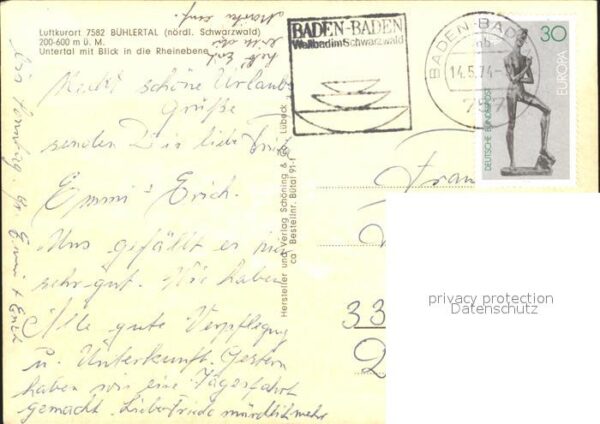 Luftkurort 7582 BÜHLERTAL (nördl. Schwarzwald)
200-600 m ü. M.
Untertal mit Blick in die Rheinebene
schöne Urlaubs
Grüße
senden Dir liebe
Emmi + Erich.
Uns gefällt es hier
sehr gut. Wir haben
Alle gute Verpflegung
u. Unterkunft. Gestern
haben wir eine Tagesfahrt
gemacht. mündlich mehr
Emmi + Erich
Hersteller und Verlag Schöning & Co Lübeck
Bestellnr. Bütal 91-1
BADEN-BADEN
Weltbad im Schwarzwald
BADEN-BADEN
14.5.74
757
30
EUROPA
DEUTSCHE BUNDESPOST
Frau
33
2
privacy protection
Datenschutz